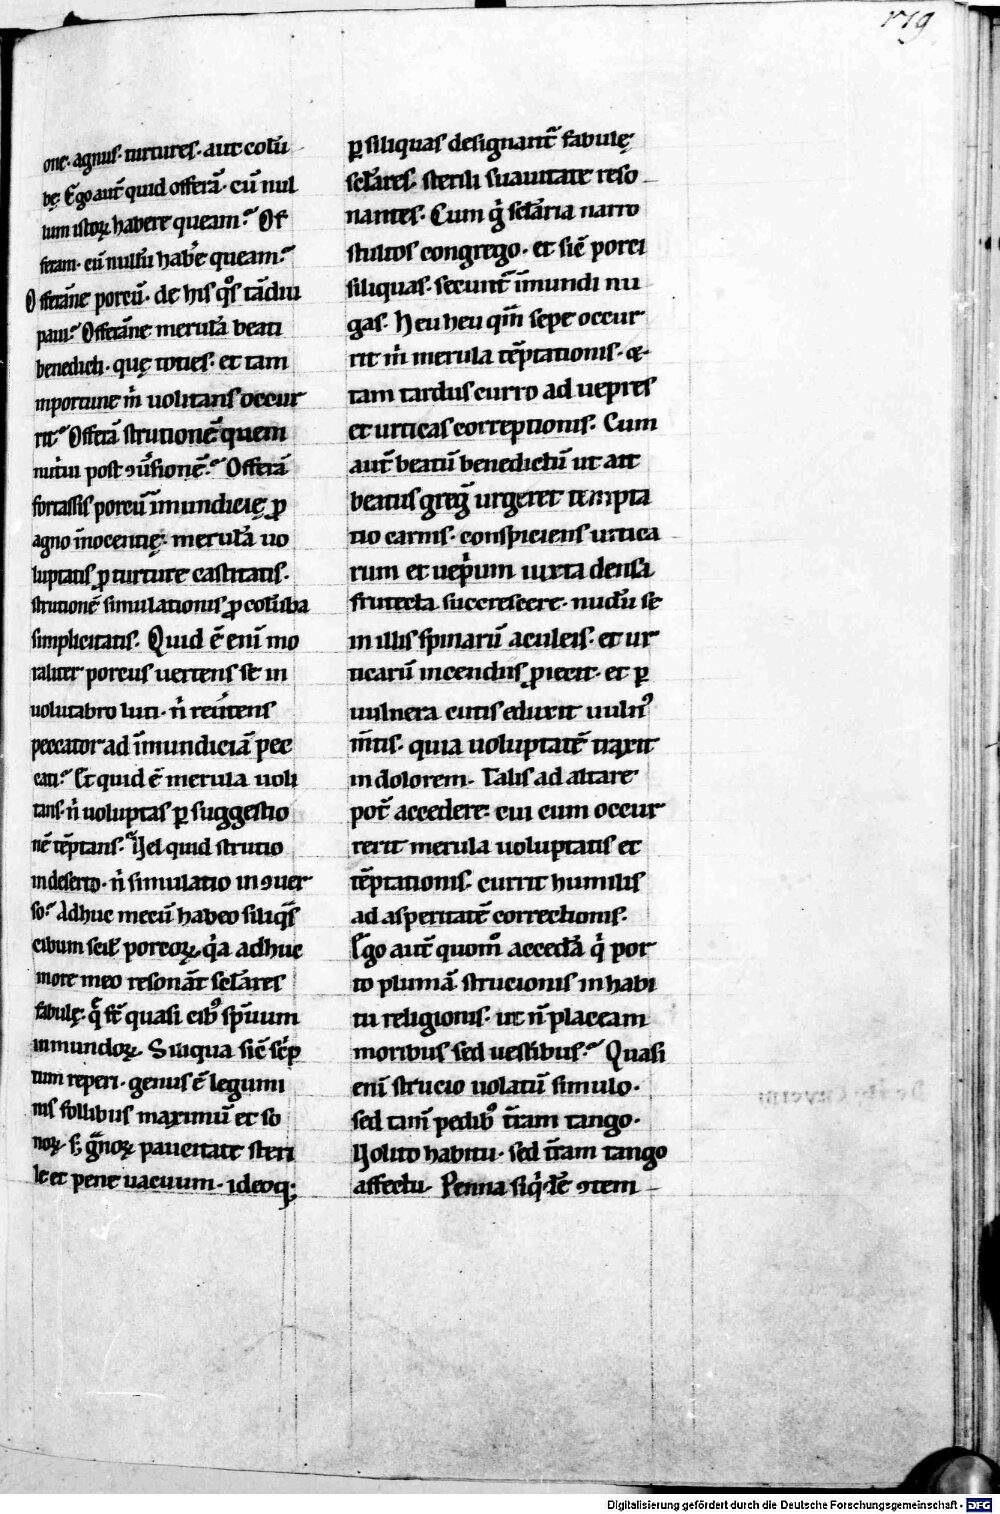 179
one· agnus· turtures· aut colū
bę. Ego aut̄ quid offerā· cū nul
lum istoꝝ habere queam? Of
feram· cū nullū hab̄e queam?
Offerāne porcū· de his qͦs tādiu
paui? Offerāne merulā beati
benedicti· quę toties· et tam
inportune m̄ uolitans occur
rit? Offerā strutionē quem
nutriui post ꝯuͥsionē? Offerā
fortassis porcū īmundicię ꝓ
agno īnocentię· merulā uo
luptatis ꝓ turture castitatis·
strutionē simulationis ꝓ colūba
simplicitatis. Quid ē eni mo
raliter porcus uertens se in
uolutabro luti· n̄ reuͥtens
peccator ad īmundiciā pec
cati? Et quid ē merula uoli
tans· n̄ uoluptas ꝑ suggestio
nē tēptans? Uel quid strutio
in deserto· n̄ simulatio in ꝯuer
so? Adhuc mecū habeo siliqͣs
cibum scil̄ porcoꝝ, qͥa adhuc
more meo resonāt sclāres
fabulę· q̄ st̄ quasi cibꝰ sp̄uum
inmundoꝝ. Siliqua sic̄ sc̄p
tum reperi· genus ē legumi
nis follibus maximū et so
noꝝ· s; gͣnoꝝ paucitate steri
le et pene uacuum· ideoq;
ꝑ siliquas designant̄ fabulę
sclāres· sterili suauitate reso
nantes· Cum gͥ sclāria narro
stultos congrego· et sic̄ porci
siliquas· secunt̄ īmundi nu
gas· Heu heu qm̄ sepe occur
rit m̄ merula tēptationis· &
tam tardus curro ad uepres
et urticas correptionis· Cum
aut̄ beatū benedictū ut ait
beatus greḡ urgeret tempta
tio carnis· conspiciens urtica
rum et uepͥum iuxta densa
frutecta succrescere· nudū se
in illis spinarū aculeis· et ur
ticarū incendiis ꝓiecit· et ꝑ
uulnera cutis eduxit uulnꝰ
m̄tis· quia uoluptatē traxit
in dolorem· Talis ad altare
pot̄ accedere· cui cum occur
rerit merula uoluptatis et
tēptationis· currit humilis
ad asperitatē correctionis·
Ego aut̄ quomͦ accedā qͥ por
to plumā strucionis in habi
tu religionis· ut n̄ placeam
moribus sed uestibus? Quasi
eni strucio uolatū simulo·
sed tam̄ pedibꝰ t̄ram tango·
Uolito habitu· sed t̄ram tango
affectu· Penna siqͥdē ꝯtem
Digitalisierung gefördert durch die Deutsche Forschungsgemeinschaft - DFG